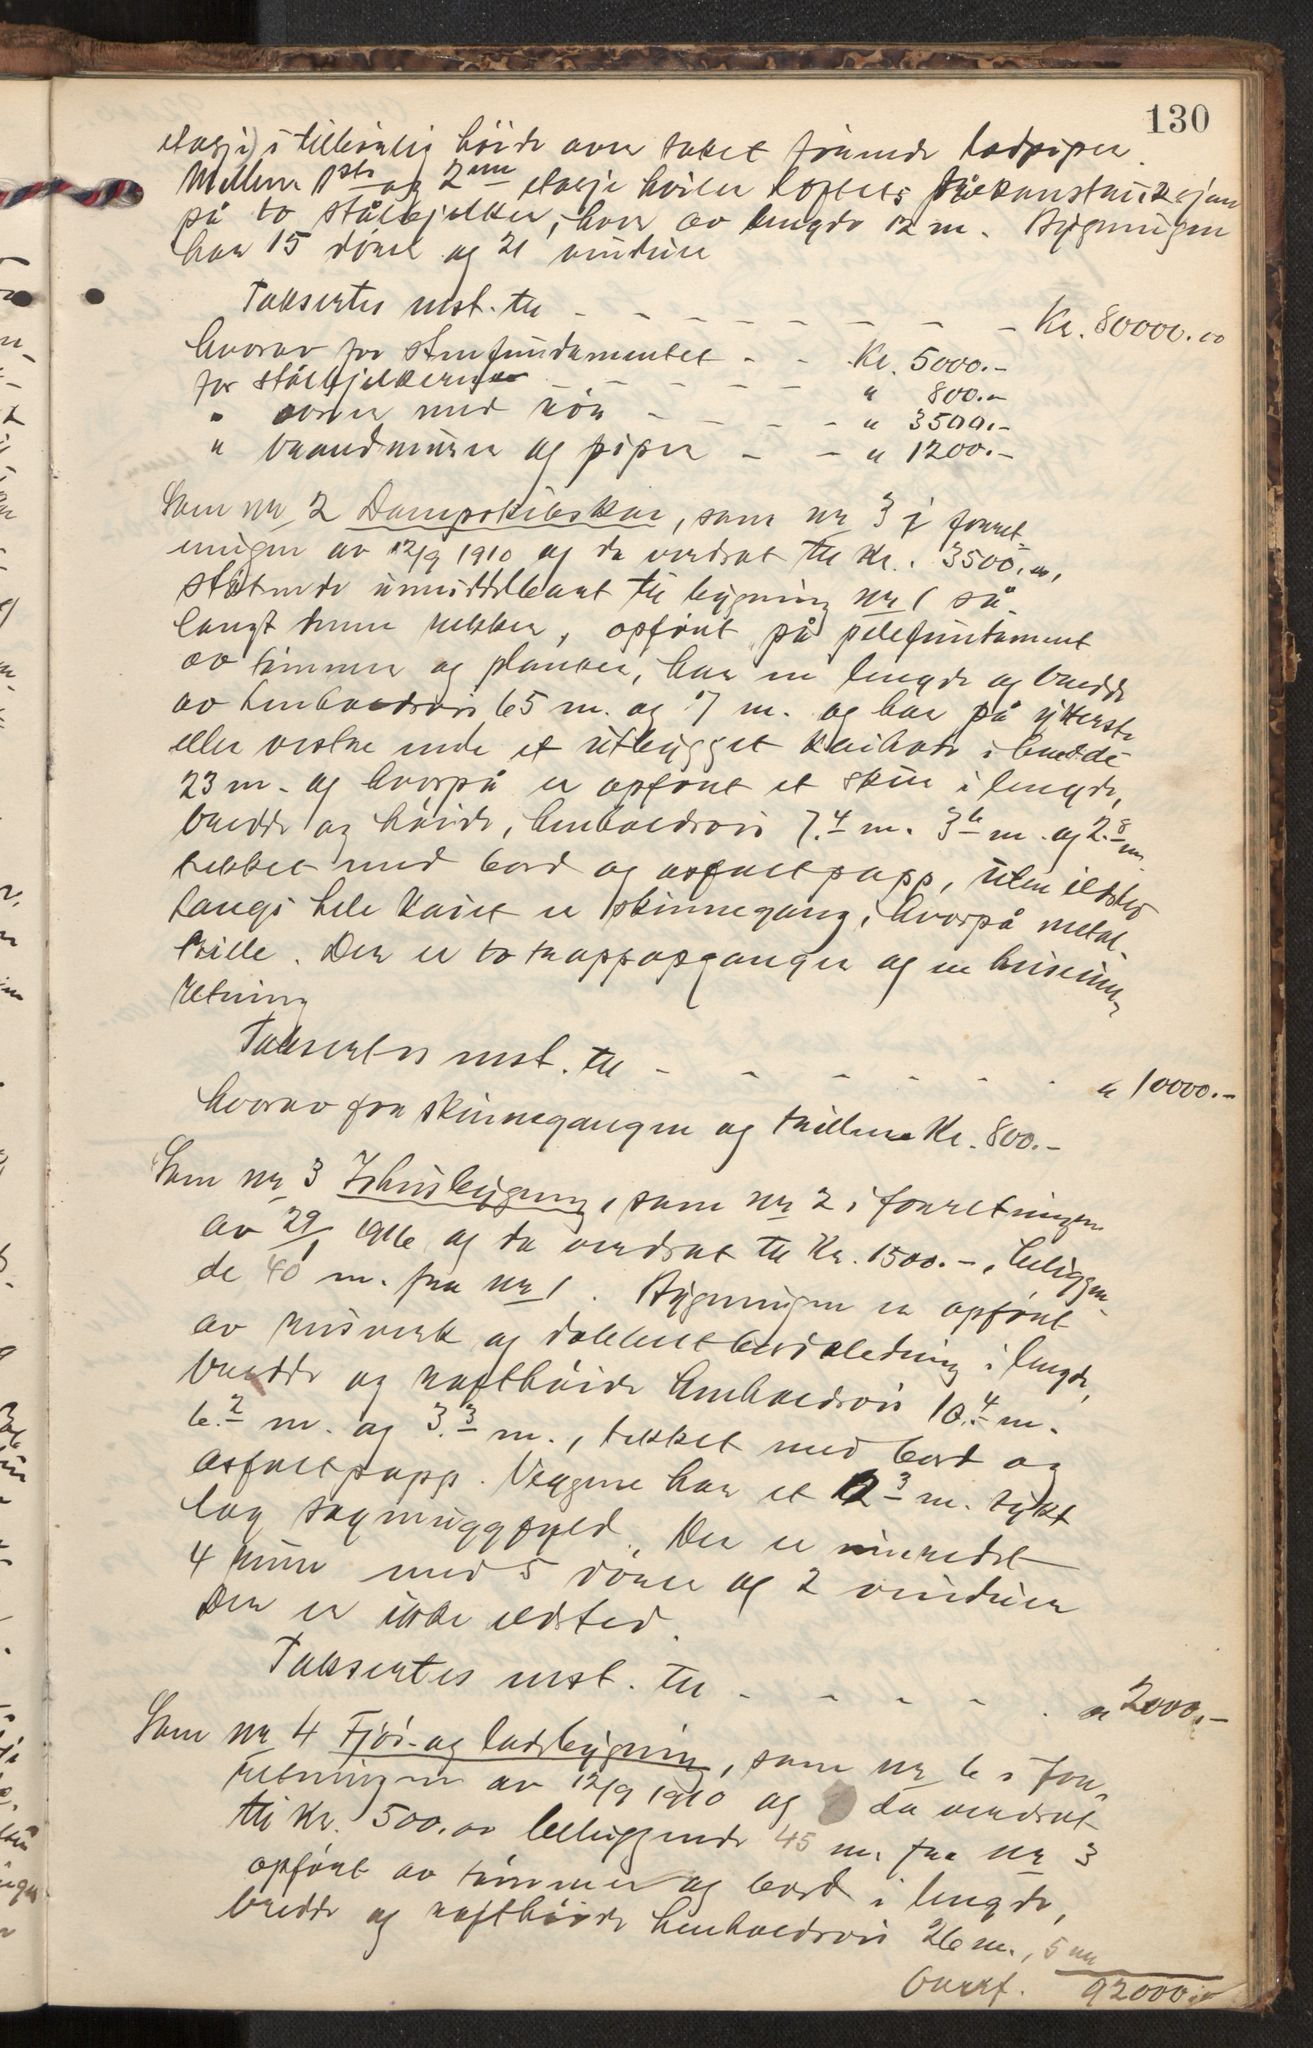 130
etasje) i tilbørlig høide over taket førende lodpiper.
Mellem 1ste og 2nen etasje hviler loftets trækonstruksjon
på to stålbjelker, hver av lengde 12 m. Bygningen
har 15 dører og 21 vinduer
Taksertes nst. til - - - - - - - - Kr. 80000.00
hvorav for stenfundamentet - - Kr. 5000.-
for stålbjelkerne - - - - - " 800.-
" ovner med rør - - - - " 3500.-
" brandmurer og piper - - " 1200.-
Som nr 2 Dampskibskai, som nr 3 i forret-
ningen av 12/9 1910 og da verdsat til Kr. 3500.00,
støtende umiddelbart til bygning nr 1 så
langt denne rekker, opført på pelefundament
av tømmer og planker, har en lengde og bredde
av henholdsvis 65 m. og 7 m. og har på ytterste
eller vestre ende et utbygget kaihode i bredde
23 m. og hvorpå er opført et skur i lengde,
bredde og høide, henholdsvis 7.4 m. 3.6 m. og 2.8 m.
tekket med bord og asfaltpapp, uten ildsted
Langs hele kaiet er skinnegang, hvorpå metal-
trille. Der er to trappopganger og en heiseinn-
retning
Taksertes nst. til - - - - - - - " 10000.-
hvorav for skinnegangen og trillene Kr. 800.-
Som nr 3 Ishusbygning, som nr 2 i forretningen
av 29/1 1916 og da verdsat til Kr. 1500.-, beliggen-
de 40 m. fra nr 1. Bygningen er opført
av reisverk og dobbelt bordklædning i lengde,
bredde og rafthøide henholdsvis 10.4 m.
6.2 m. og 3.3 m., tekket med bord og
asfaltpapp. Veggene har et 0.3 m. tykt
lag sagmuggfyld. Der er innredet
4 rum med 5 dører og 2 vinduer
Der er ikke ildsted.
Taksertes nst. til - - - - - " 2000.-
Som nr 4 Fjøs- og ladebygning, som nr 6 i for-
retningen av 12/9 1910 og da verdsat
til Kr. 500.00 beliggende 45 m. fra nr 3
opført av tømmer og bord i lengde,
bredde og rafthøide henholdsvis 26 m., 5 m
Overf. 92000.00